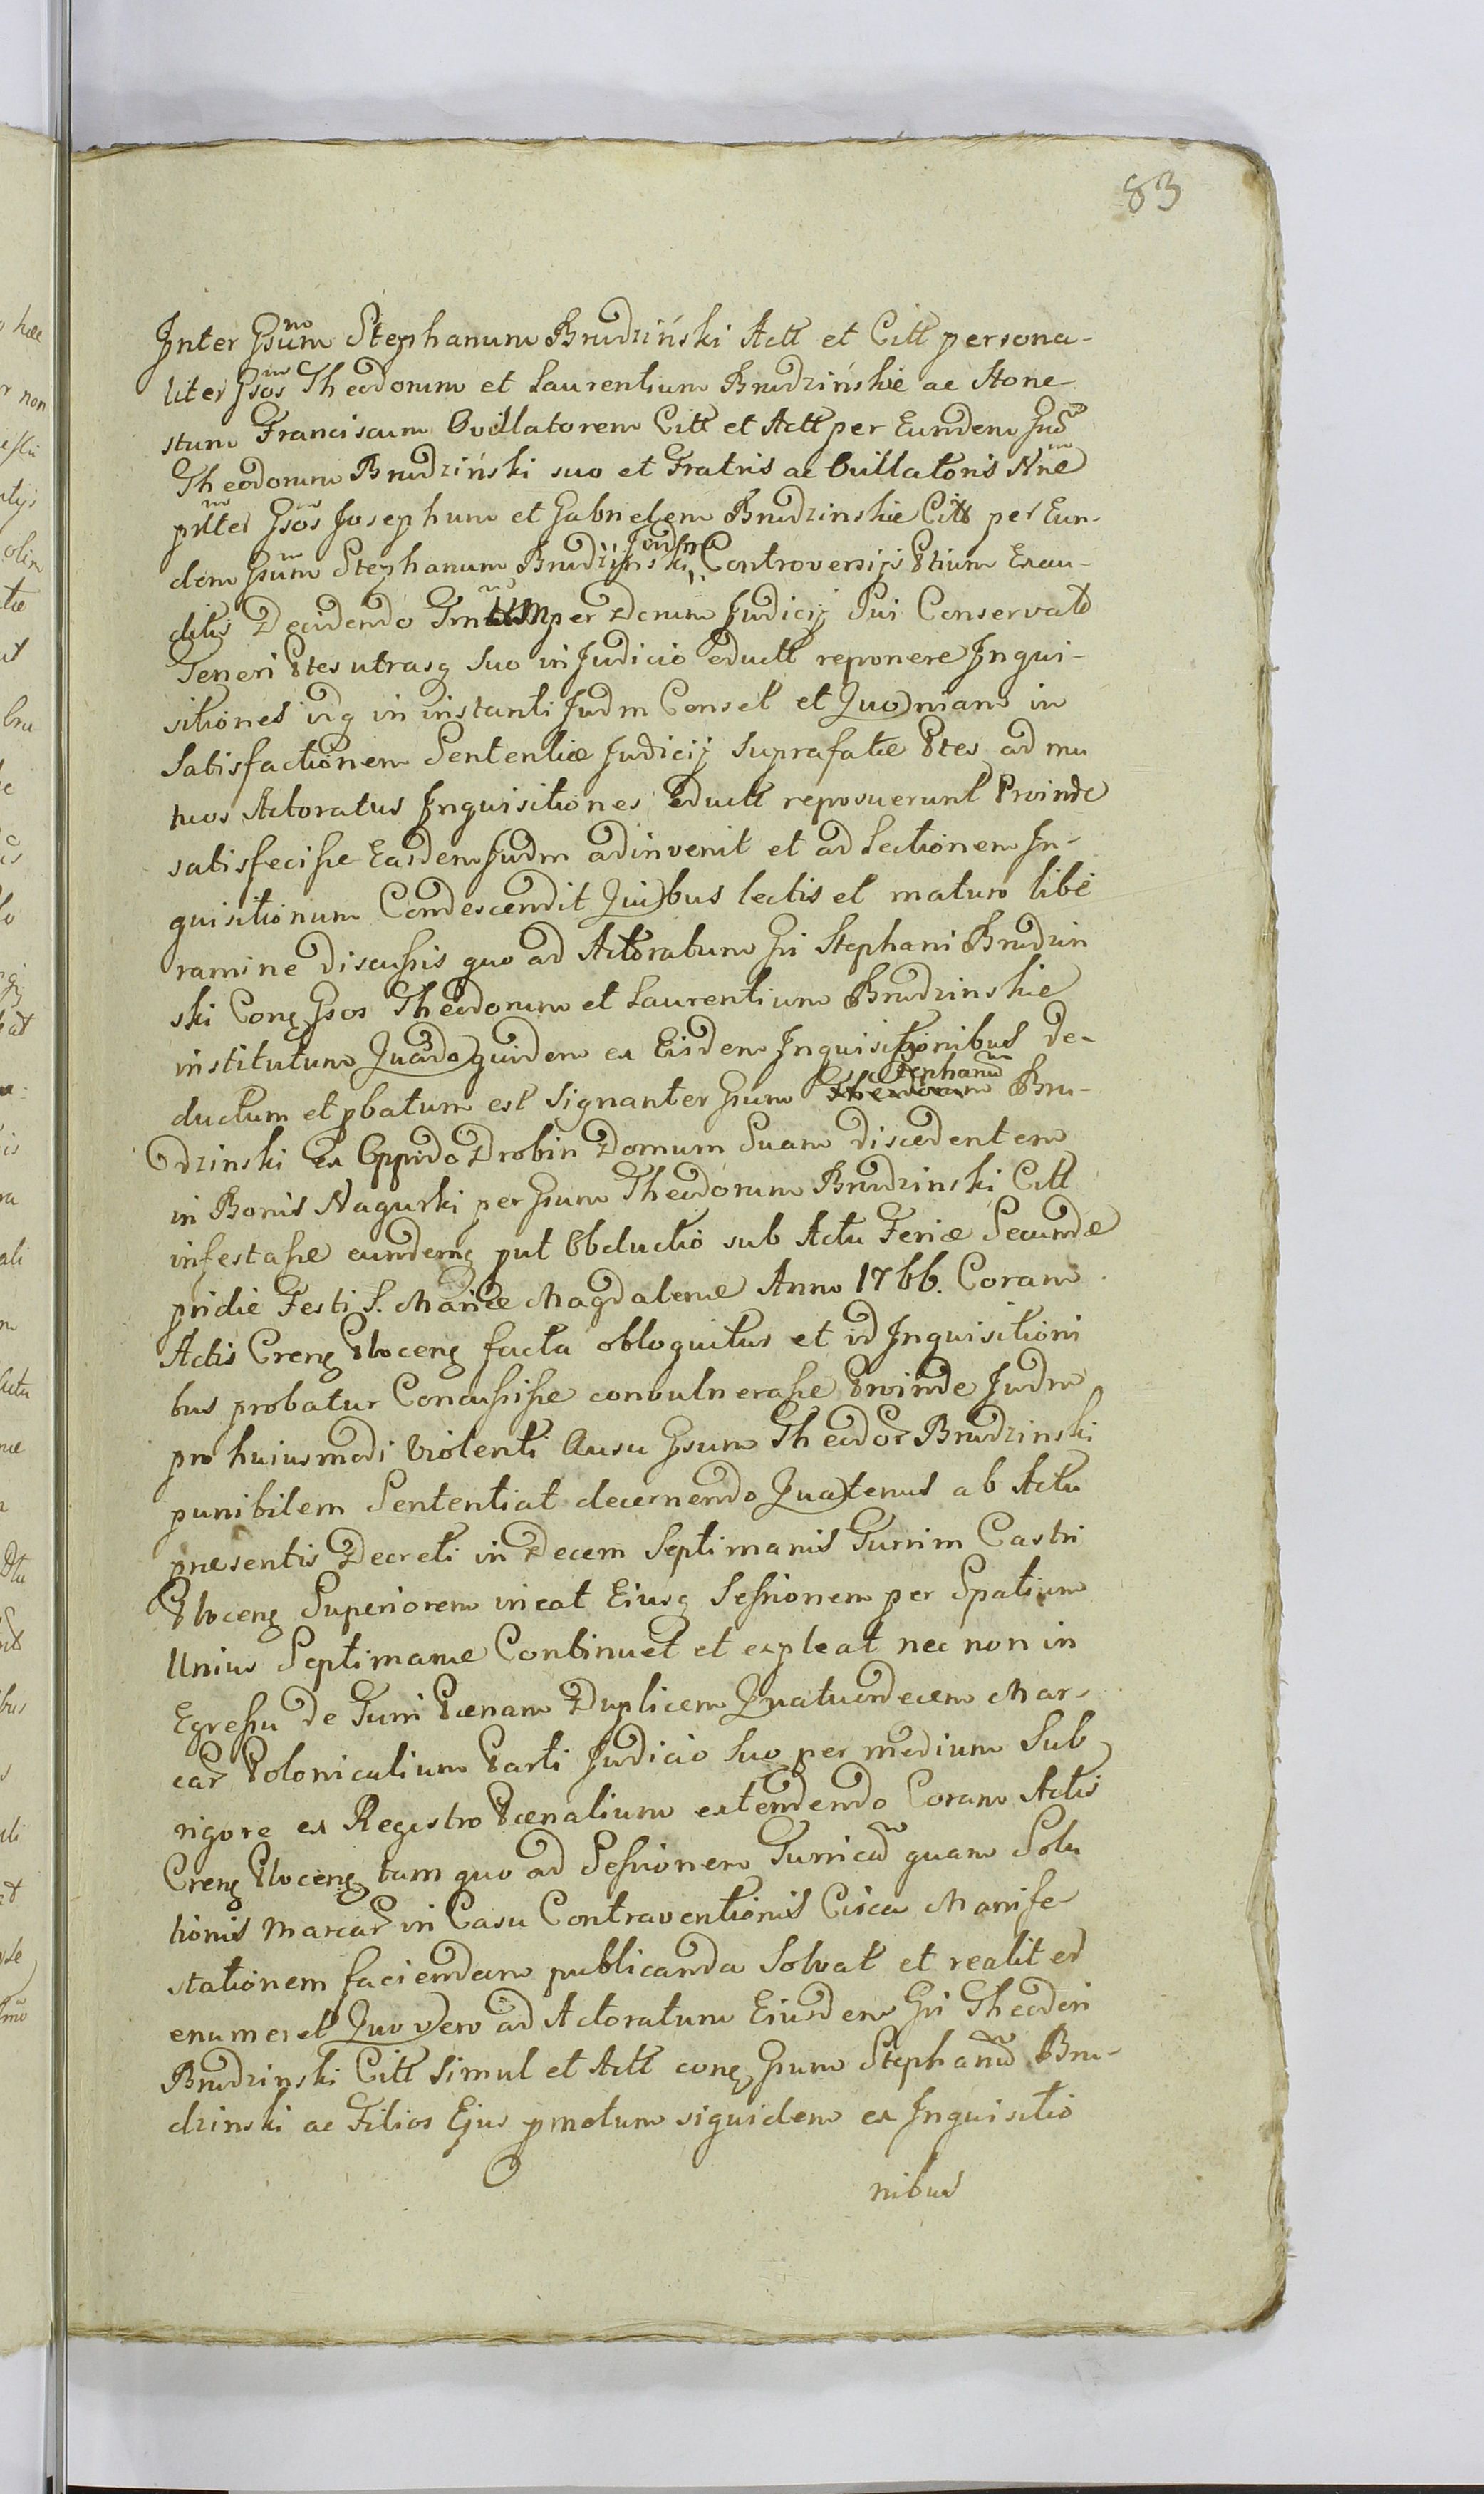 83
Inter Gsum Stephanum Brudziński Actt et Citt persona-
liter Gsos Theodorum et Laurentium Brudzińskie ac Hone-
stum Franciscum Ovillatorem Citt et Actt per Eundem Gsū
Theodorum Brudziński suo et Fratris ac Ovillatoris Nne
prltter Gsos Josephum et Gabrielem Brudzinskie Citt per Eun-
dem Gsum Stephanum Brudzinski, Judm Controversijs Ptium Exau-
ditis Decidendo per Domum Judicij Sui Conservato
Teneri Ptes utrasq suo in Judicio eductt reponere Inqui-
sitiones idq in instanti Judm Conset et Quoniam in
Satisfactionem Sententiæ Judicij suprafatæ Ptes ad mu
tuos Actoratus Inquisitiones eductt reposuerunt Proinde
satisfecisse Easdem Judm adinvenit et ad Lectionem In-
quisitionum Condescendit Quibus lectis et maturo libe
ramine discussis quo ad Actoratum Gsi Stephani Brudzin
ski Conq Gsos Theodorum et Laurentium Brudzinskie
institutum Quando quidem ex Eisdem Inquisitionibus de-
ductum et pbatum est signanter Gsum Stephanū Bru-
dzinski ex Oppido Drobin Domum Suam discedentem
in Bonis Nagurki per Gsum Theodorum Brudzinski Citt
infestasse eundemq put Obductio sub Actu Feriæ Secundæ
pridie Festi S. Mariæ Magdalenæ Anno 1766. Coram
Actis Crenq Plocenq facta obloquitur et id Inquisitioni
bus probatur Concussisse convulnerasse Proinde Judm
pro huiusmodi Violenti Ausu Gsum Theodor Brudzinski
punibilem Sententiat decernendo Quatenus ab Actu
præsentis Decreti in Decem Septimanis Turrim Castri
Plocenq Superiorem ineat Eiusq Sessionem per Spatium
Unius Septimanæ Continuet et expleat nec non in
Egressu de Turri Pœnam Duplicem Quatuordecem Mar-
car Polonicalium Parti Judicio suo per medium Sub
rigore ex Registro Pœnalium extendendo Coram Actis
Crenq Plocenq tam quo ad Sessionem Turricā quam Solu
tionis Marcar in Casu Contraventionis Circa Manife
stationem faciendam publicanda Solvat et realiter
enumeret Quo vero ad Actoratum Eiusdem Gsi Theodori
Brudzinski Citt simul et Actt conq Gsum Stephanū Bru-
dzinski ac Filios Ejus pmotum siquidem ex Inquisitio
nibus